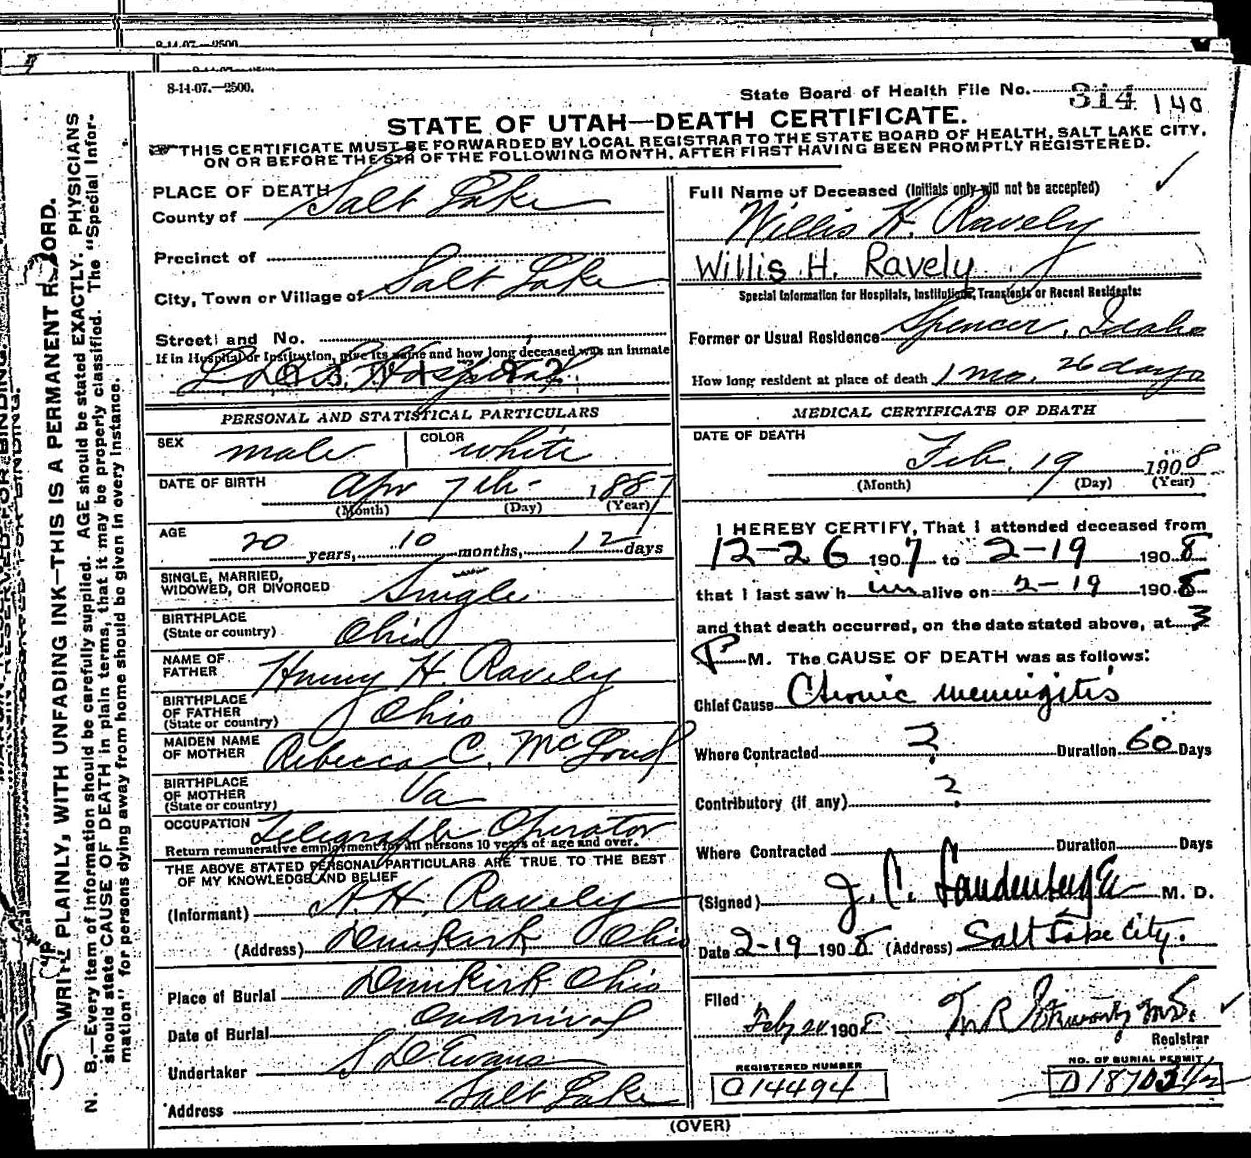 8-14-07.—2500.
State Board of Health File No. 314 140
STATE OF UTAH—DEATH CERTIFICATE.
THIS CERTIFICATE MUST BE FORWARDED BY LOCAL REGISTRAR TO THE STATE BOARD OF HEALTH, SALT LAKE CITY,
ON OR BEFORE THE 5TH OF THE FOLLOWING MONTH, AFTER FIRST HAVING BEEN PROMPTLY REGISTERED.
WRITE PLAINLY, WITH UNFADING INK—THIS IS A PERMANENT RECORD.
N. B.—Every item of information should be carefully supplied. AGE should be stated EXACTLY. PHYSICIANS
should state CAUSE OF DEATH in plain terms, that it may be properly classified. The "Special Infor-
mation" for persons dying away from home should be given in every instance.
PLACE OF DEATH
County of Salt Lake
Precinct of
City, Town or Village of Salt Lake
Street and No.
If in Hospital or Institution, give its name and how long deceased was an inmate
L D S Hospital
PERSONAL AND STATISTICAL PARTICULARS
SEX male COLOR white
DATE OF BIRTH Apr 7th 1887
(Month) (Day) (Year)
AGE 20 years, 10 months, 12 days
SINGLE, MARRIED,
WIDOWED, OR DIVORCED Single
BIRTHPLACE
(State or country) Ohio
NAME OF
FATHER Henry H. Ravely
BIRTHPLACE
OF FATHER
(State or country) Ohio
MAIDEN NAME
OF MOTHER Rebecca C. McLoud
BIRTHPLACE
OF MOTHER
(State or country) Va
OCCUPATION Telegraph Operator
Return remunerative employment for all persons 10 years of age and over.
THE ABOVE STATED PERSONAL PARTICULARS ARE TRUE TO THE BEST
OF MY KNOWLEDGE AND BELIEF
(Informant) H. H. Ravely
(Address) Dunkirk Ohio
Place of Burial Dunkirk Ohio
Date of Burial On Arrival
Undertaker S D Evans
Address Salt Lake
Full Name of Deceased (Initials only will not be accepted)
Willis H. Ravely
Willis H. Ravely
Special Information for Hospitals, Institutions, Transients or Recent Residents:
Former or Usual Residence Spencer, Idaho
How long resident at place of death 1 mo. 26 days
MEDICAL CERTIFICATE OF DEATH
DATE OF DEATH
Feb. 19 1908
(Month) (Day) (Year)
I HEREBY CERTIFY, That I attended deceased from
12-26 1907 to 2-19 1908
that I last saw him alive on 2-19 1908
and that death occurred, on the date stated above, at 3
P M. The CAUSE OF DEATH was as follows:
Chief Cause Chronic meningitis
Where Contracted ? Duration 60 Days
Contributory (if any) ?
Where Contracted Duration Days
(Signed) J. C. Landenberger M. D.
Date 2-19 1908 (Address) Salt Lake City.
Filed
Feby 20 1908
Registrar
REGISTERED NUMBER
NO. OF BURIAL PERMIT
(OVER)